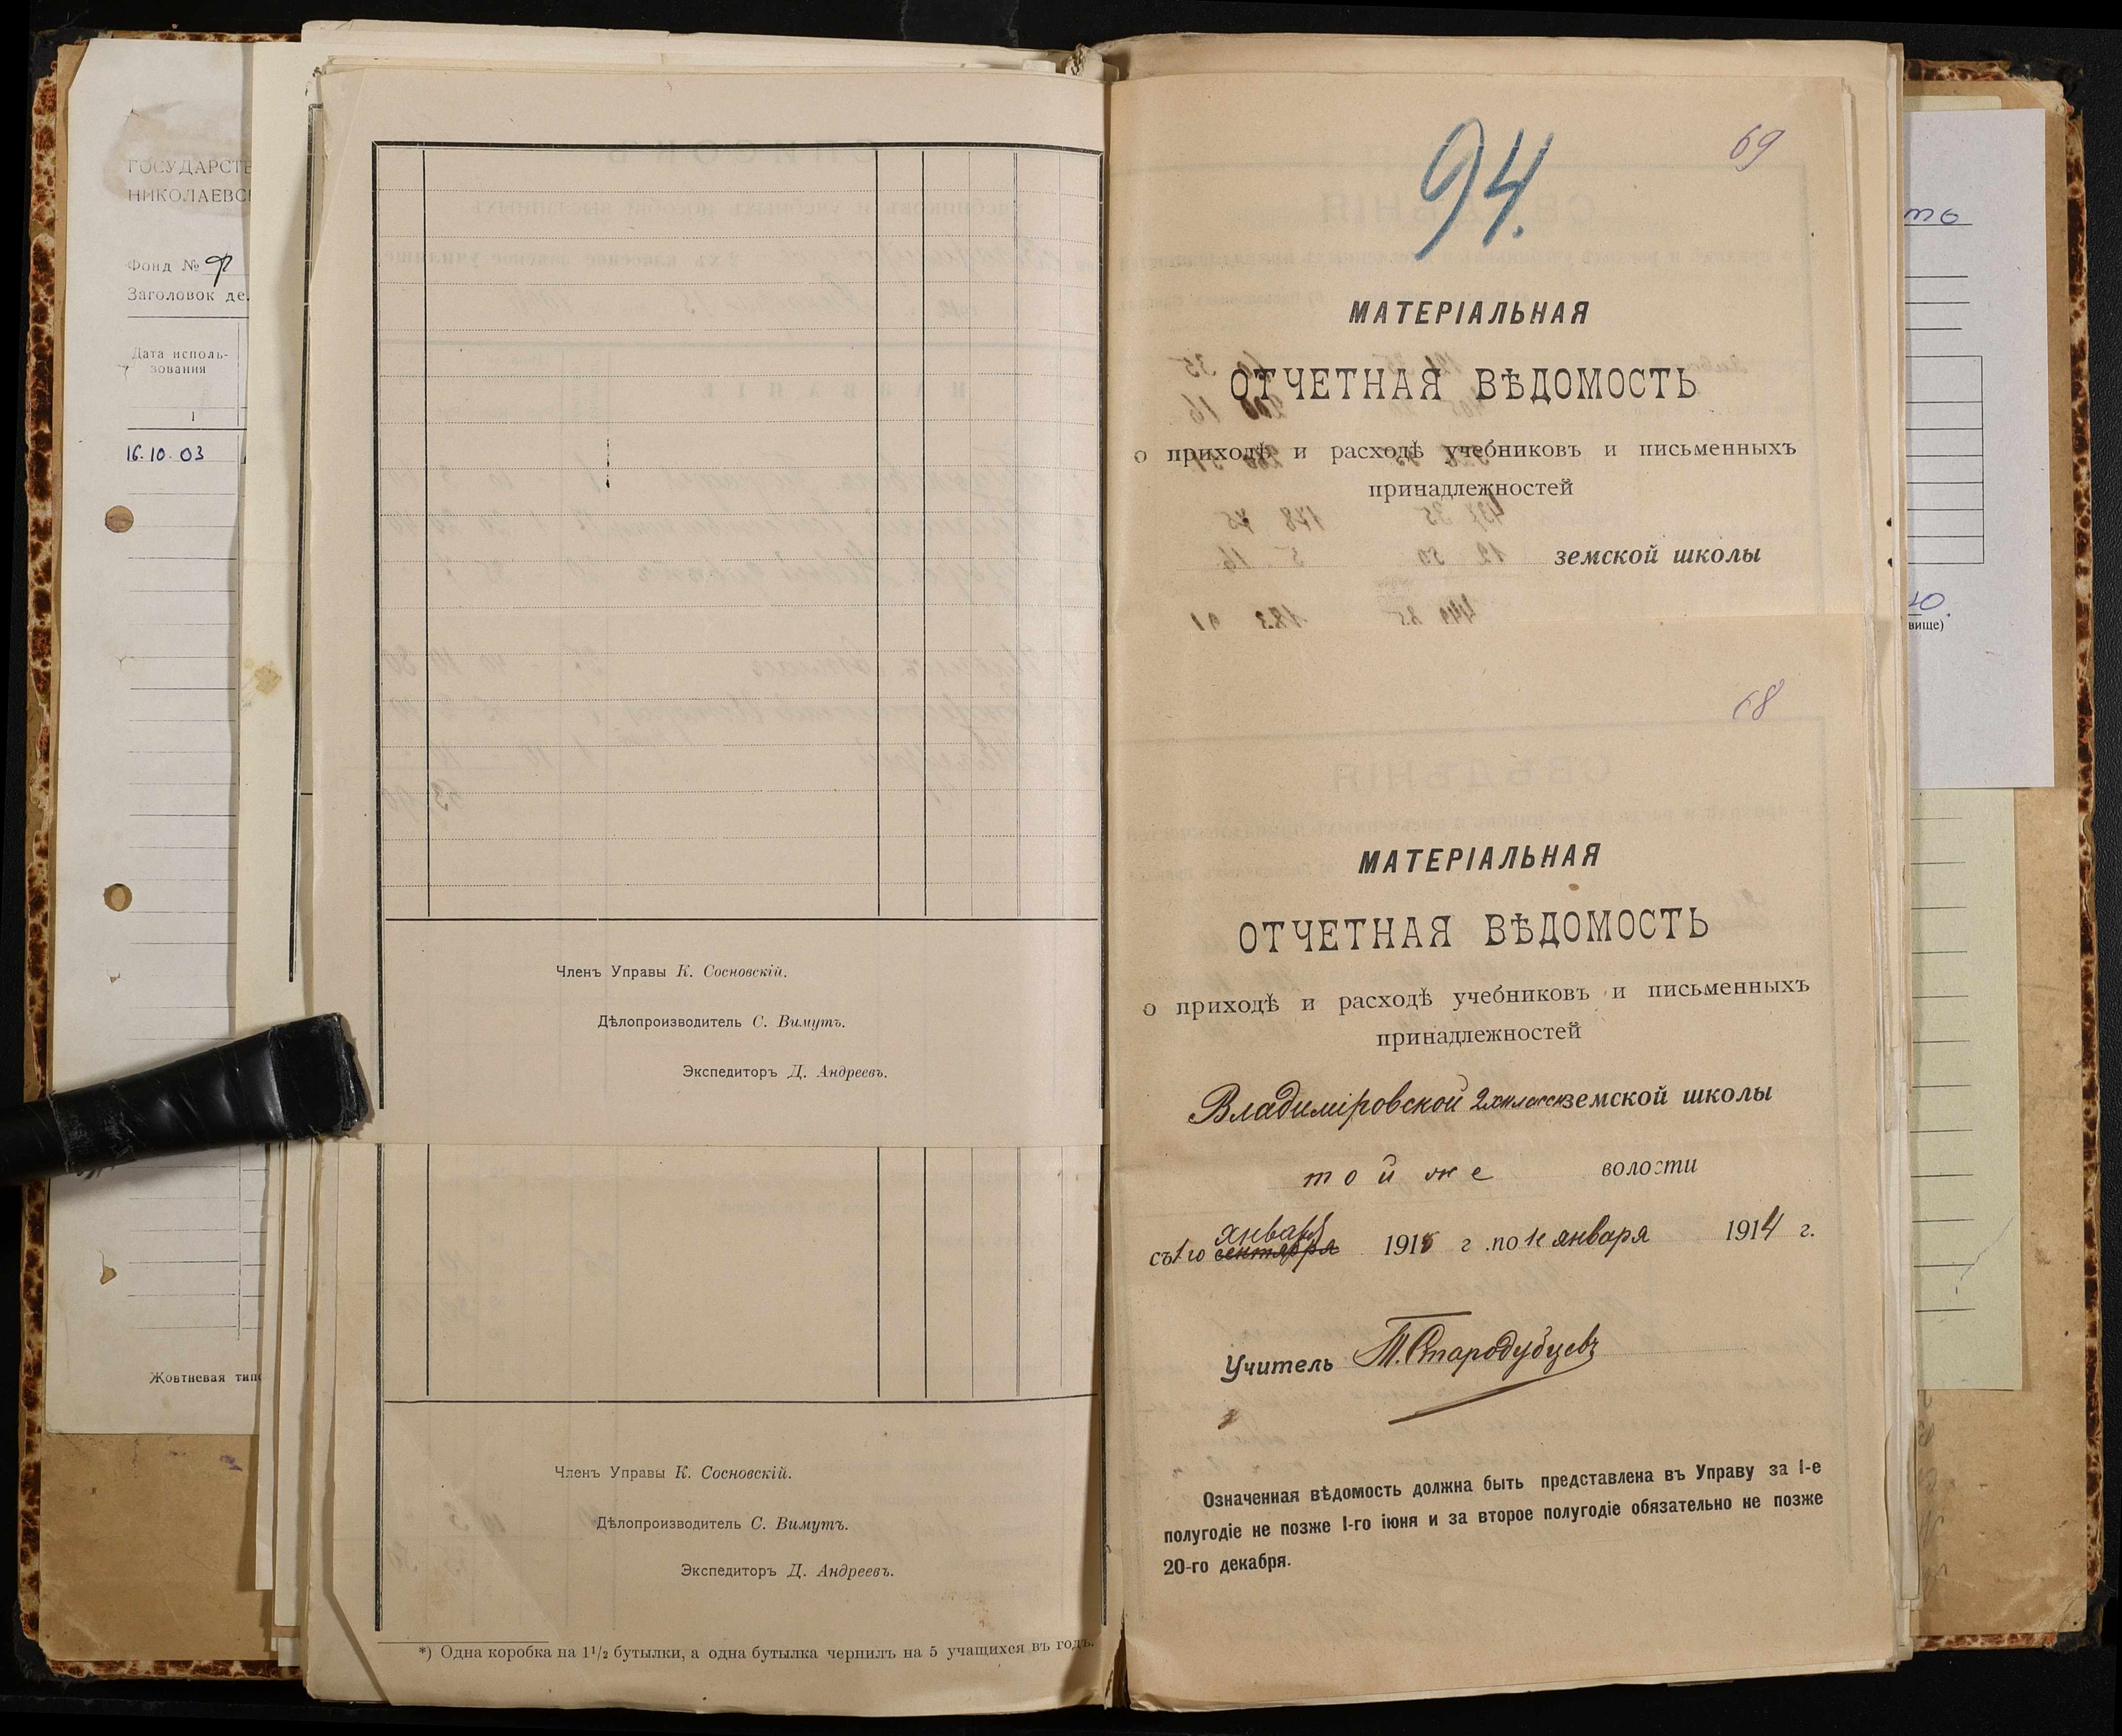 ГОСУДАРСТВ
НИКОЛАЕВС
Фонд №
Заголовок де
Дата исполь-
зования
1
16.10.03
Жовтневая тип
Членъ Управы К. Сосновскій.
Дѣлопроизводитель С. Вимутъ.
Экспедиторъ Д. Андреевъ.
Членъ Управы К. Сосновскій.
Дѣлопроизводитель С. Вимутъ.
Экспедиторъ Д. Андреевъ.
*) Одна коробка на 1¹/₂ бутылки, а одна бутылка чернилъ на 5 учащихся въ годъ.
94.
69
МАТЕРІАЛЬНАЯ
ОТЧЕТНАЯ ВѢДОМОСТЬ
о приходѣ и расходѣ учебниковъ и письменныхъ
принадлежностей
земской школы
68
МАТЕРІАЛЬНАЯ
ОТЧЕТНАЯ ВѢДОМОСТЬ
о приходѣ и расходѣ учебниковъ и письменныхъ
принадлежностей
Владиміровской 2хклассн земской школы
той же волости
января
съ 1го сентября 191 г. по 1е января 1914 г.
Учитель Т. Стародубцевъ
Означенная вѣдомость должна быть представлена въ Управу за I-е
полугодіе не позже I-го іюня и за второе полугодіе обязательно не позже
20-го декабря.
вище)